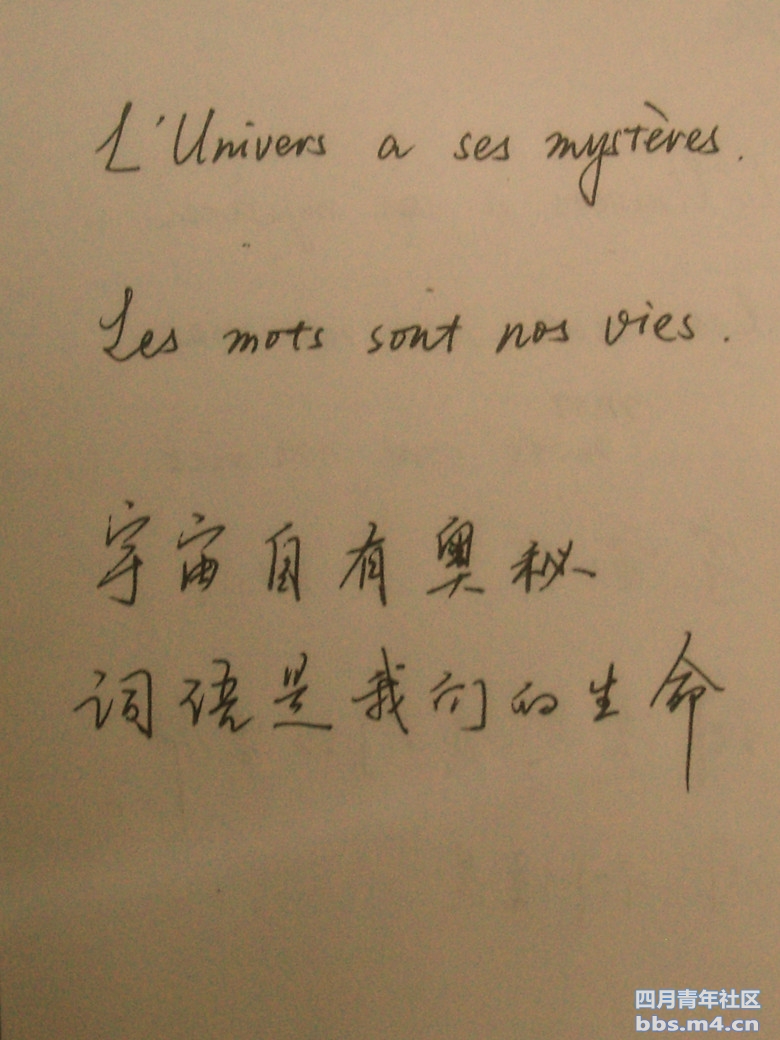 L'Univers a ses mystères.
Les mots sont nos vies.
宇宙自有奥秘
词语是我们的生命
四月青年社区
bbs.m4.cn